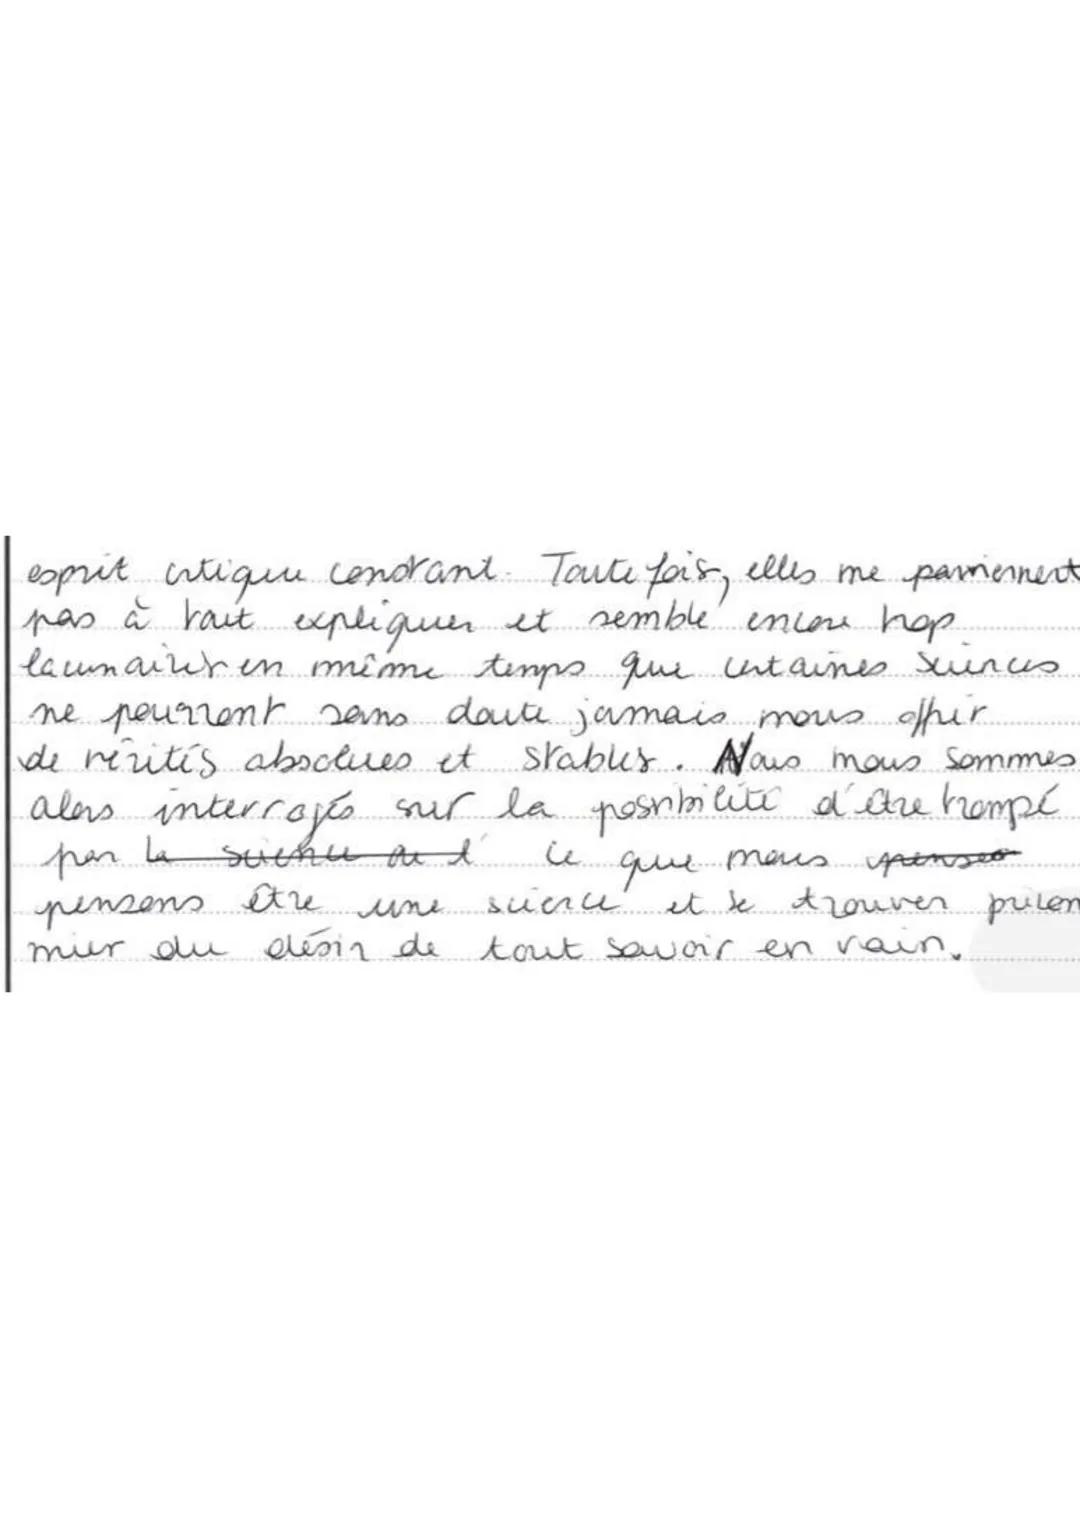 esprit critique constant. Toutefois, elles ne parviennent
pas à tout expliquer et semble encore trop
lacunaires en même temps que certaines sciences
ne pourront sans doute jamais nous offrir
de vérités absolues et stables. Nous nous sommes
alors interrogés sur la possibilité d'être trompé
par la science ce que nous penso
pensons être une science et se trouver prison
nier du désir de tout savoir en vain.